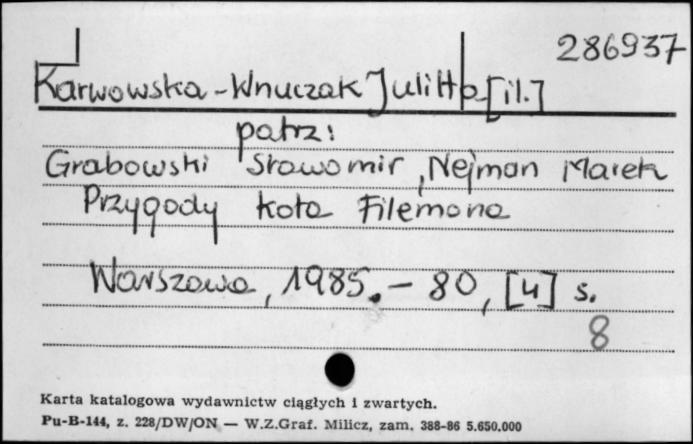 286937
Karwowska-Wnuczak Julitta [il.]
patrz:
Grabowski Sławomir, Nejman Marek
Przygody kota Filemona
Warszawa, 1985. - 80, [4] s.
8
Karta katalogowa wydawnictw ciągłych i zwartych.
Pu-B-144, z. 228/DW/ON — W.Z.Graf. Milicz, zam. 388-86 5.650.000